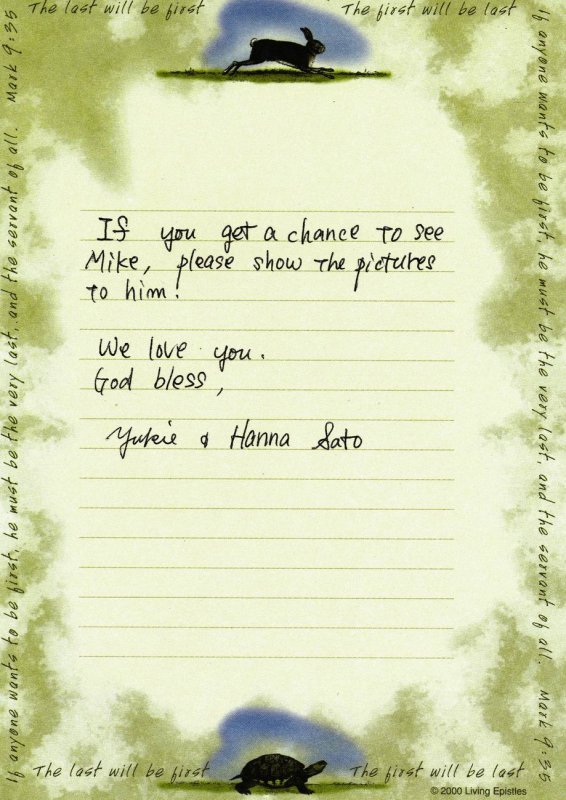 The last will be first
The first will be last
If you get a chance to see
Mike, please show the pictures
to him!
We love you.
God bless,
Yukie & Hanna Sato
The last will be first
The first will be last
© 2000 Living Epistles
If anyone wants to be first, he must be the very last, and the servant of all. Mark 9:35
If anyone wants to be first, he must be the very last, and the servant of all. Mark 9:35